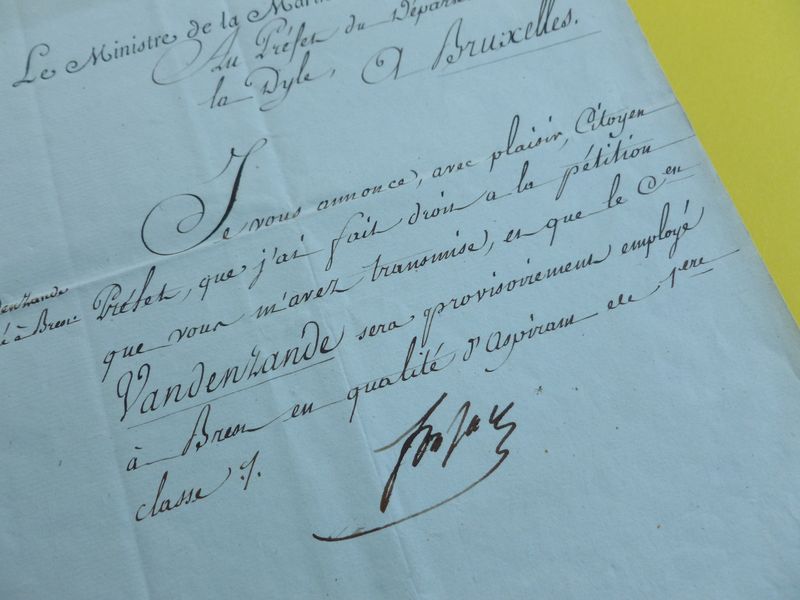 Le Ministre de la Mari
Au Préfet du Départ
la Dyle, A Bruxelles.
Je vous annonce, avec plaisir, Citoyen
Préfet, que j'ai fait droit a la pétition
que vous m'avez transmise, et que le C.en
Vandenzande sera provisoirement employé
à Brest en qualité d'Aspirant de 1ere
classe ./.
denzande
é à Brest